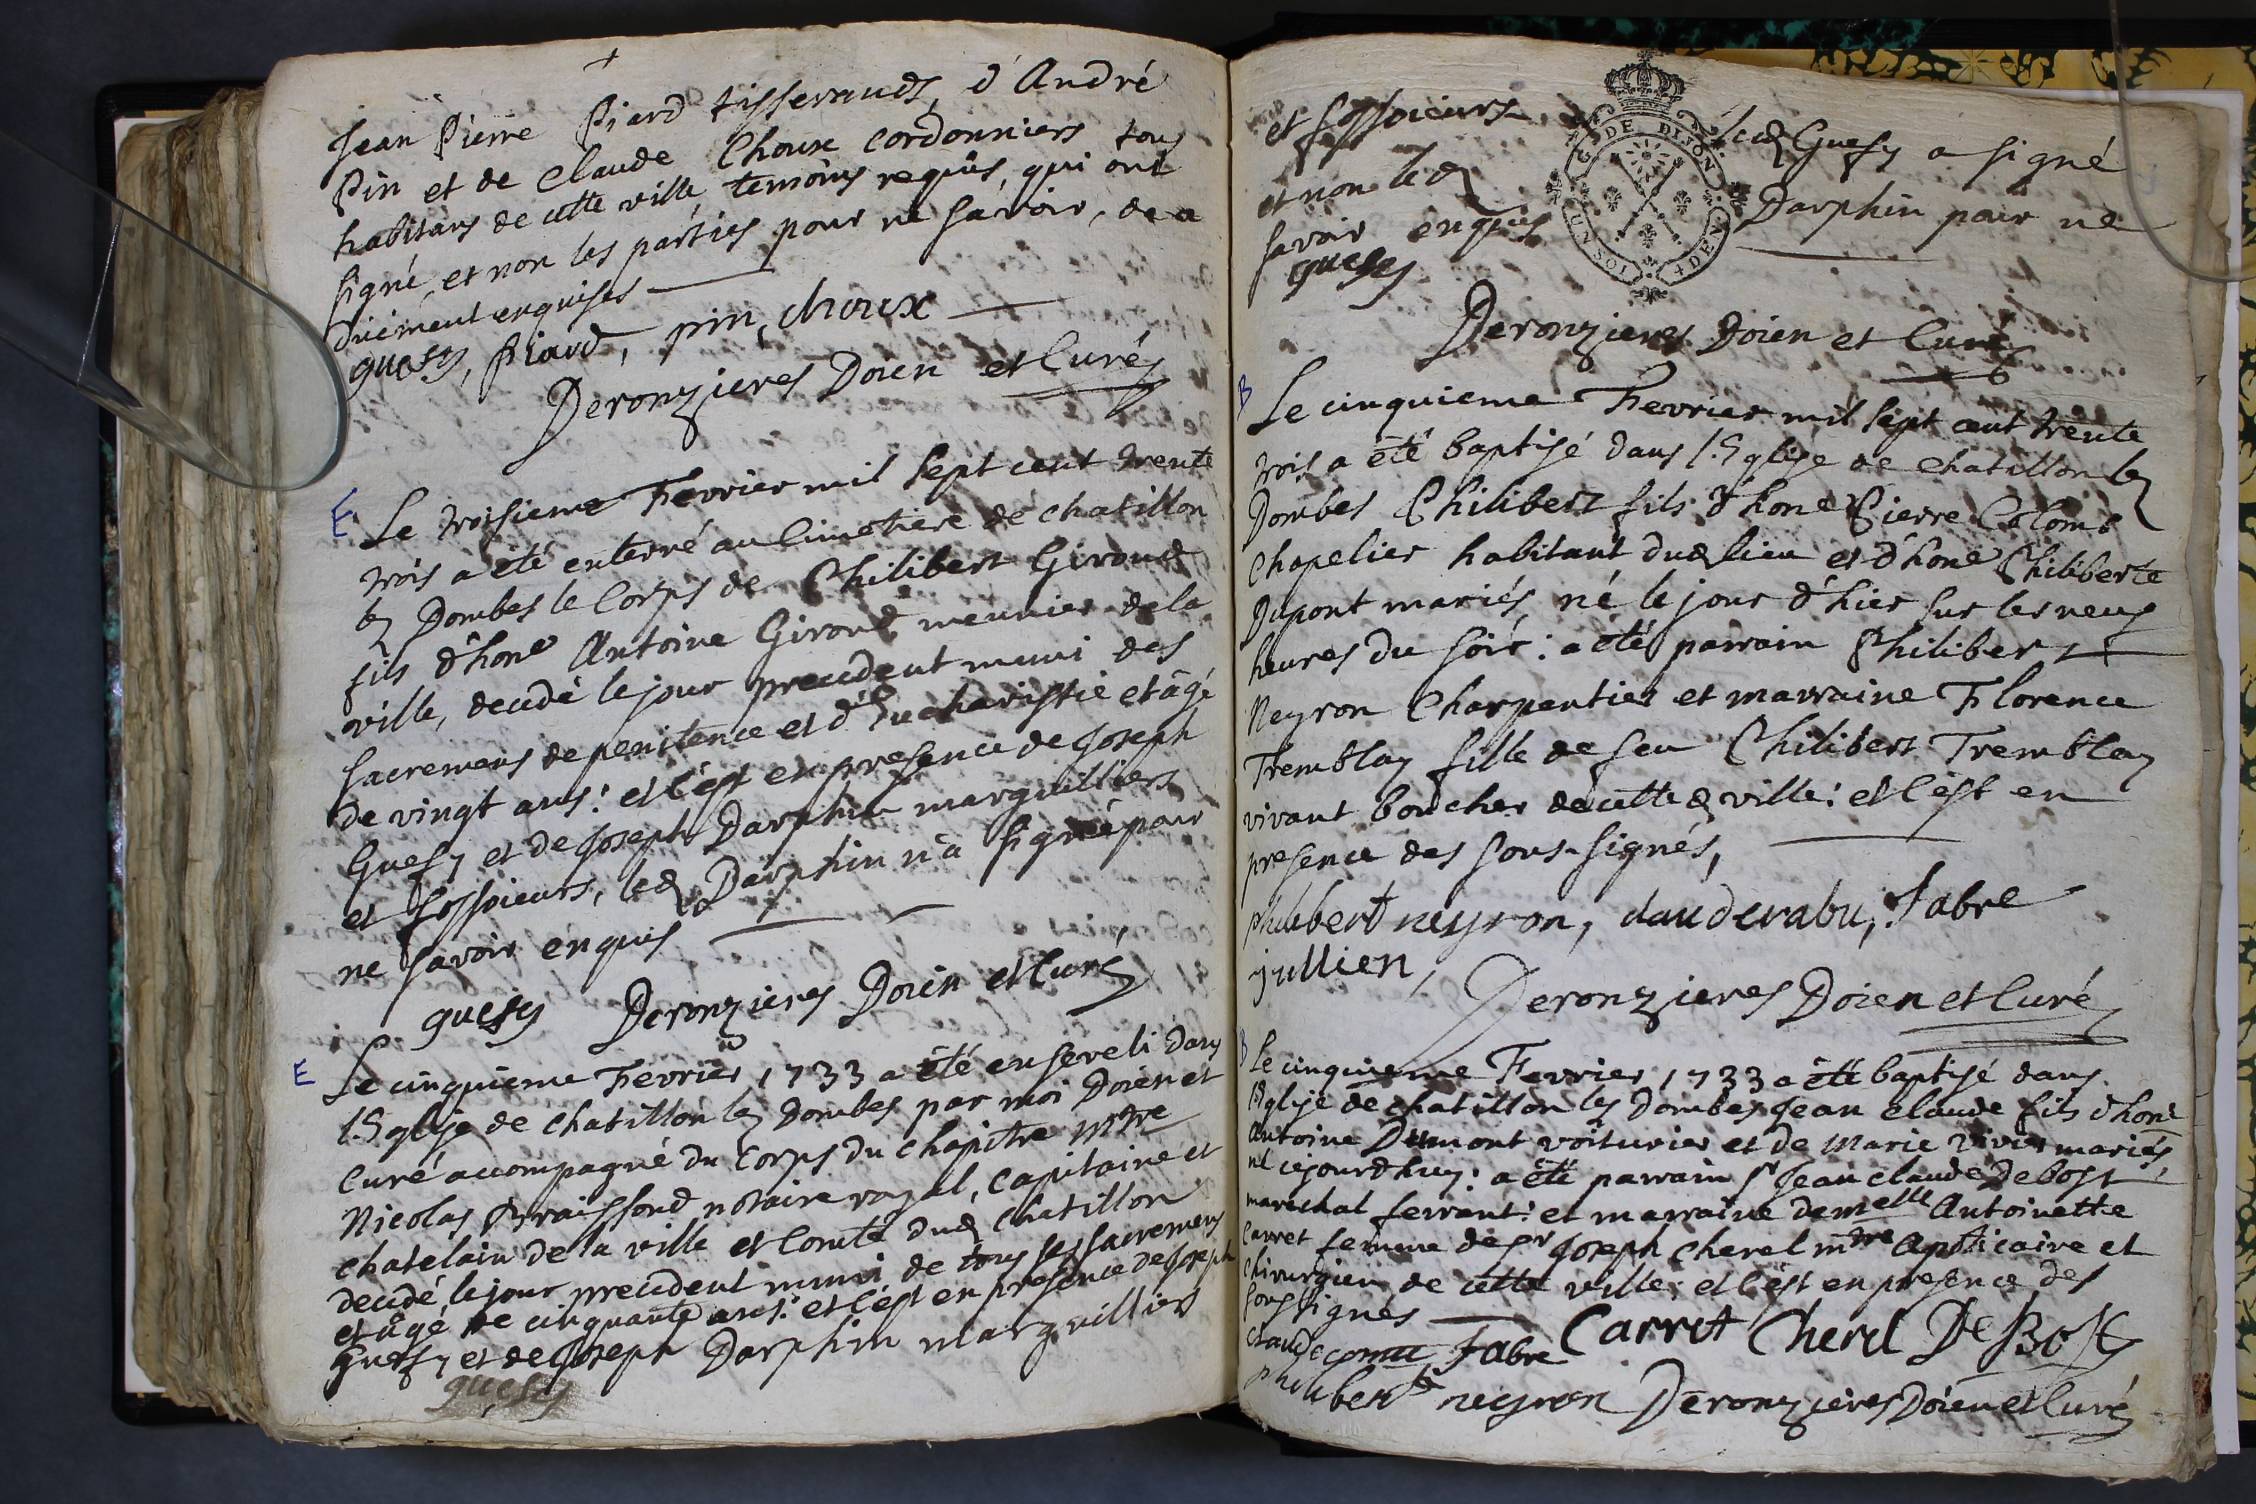 +
Jean Pierre Piard tisserands, d'André
Pin et de Claude Choux cordonniers tous
habitans de cette ville, temoins requis, qui ont
signé, et non les parties pour ne savoir, de ce
duëment enquises
guesy, piard, pin, choux
Deronzieres Doien et Curé
E Le troisieme Fevrier mil sept cent trente
trois a été enterré au Cimetiere de chatillon
lez Dombes le Corps de Philibert Giroud
fils d'hone Antoine Giroud meunier de la
ville, decedé le jour precedent muni des
sacremens de penitence et d'Eucharistie et âgé
de vingt ans: et c'est en presence de Joseph
Guesy et de Joseph Darphin marguilliers
et fossoieurs, led Darphin n'a signé pour
ne savoir enquis
guesy Deronzieres Doien et Curé
E Le cinquieme Fevrier 1733 a été enseveli dans
l'Eglise de chatillon lez Dombes par moi Doien et
Curé accompagné du Corps du Chapitre mtre
Nicolas Braissoud notaire royal, Capitaine et
chatelain de la ville et Comté dud Chatillon
decedé le jour precedent muni de tous ses sacremens
et âgé de cinquante ans: et c'est en presence de Joseph
Guesy et de Joseph Darphin marguilliers
guesy
et fossoieurs led Guesy a signé
et non led Darphin pour ne
savoir enquis
G. DE DIJON
UN SOL 4 DEN
guesy
Deronzieres Doien et Curé
B Le cinquieme Fevrier mil sept cent trente
trois a été baptisé dans l'Eglise de chatillon lez
Dombes Philibert fils d'hone Pierre Colomb
Chapelier habitant dud lieu et d'hone Philiberte
Dupont mariés, né le jour d'hier sur les neuf
heures du soir: a été parrain Philibert
Neyron Charpentier et marraine Florence
Tremblay fille de feu Philibert Tremblay
vivant boucher de cette d ville: et c'est en
presence des sous-signés,
philibert neyron, Fabre
jullien,
Deronzieres Doien et Curé
B Le cinquieme Fevrier 1733 a été baptisé dans
l'Eglise de chatillon lez Dombes Jean Claude fils d'hone
Antoine Dumont voiturier et de Marie Vivier mariés,
né cejourdhuy: a été parrain sr Jean Claude Debost
marechal ferrant: et marraine demelle Antoinette
Carret femme de sr Joseph Cherel mtre Apoticaire et
Chirurgien de cette ville: et c'est en presence des
soussignés
Claude Fabre Carret Cherel DeBost
philibert neyron Deronzieres Doien et Curé